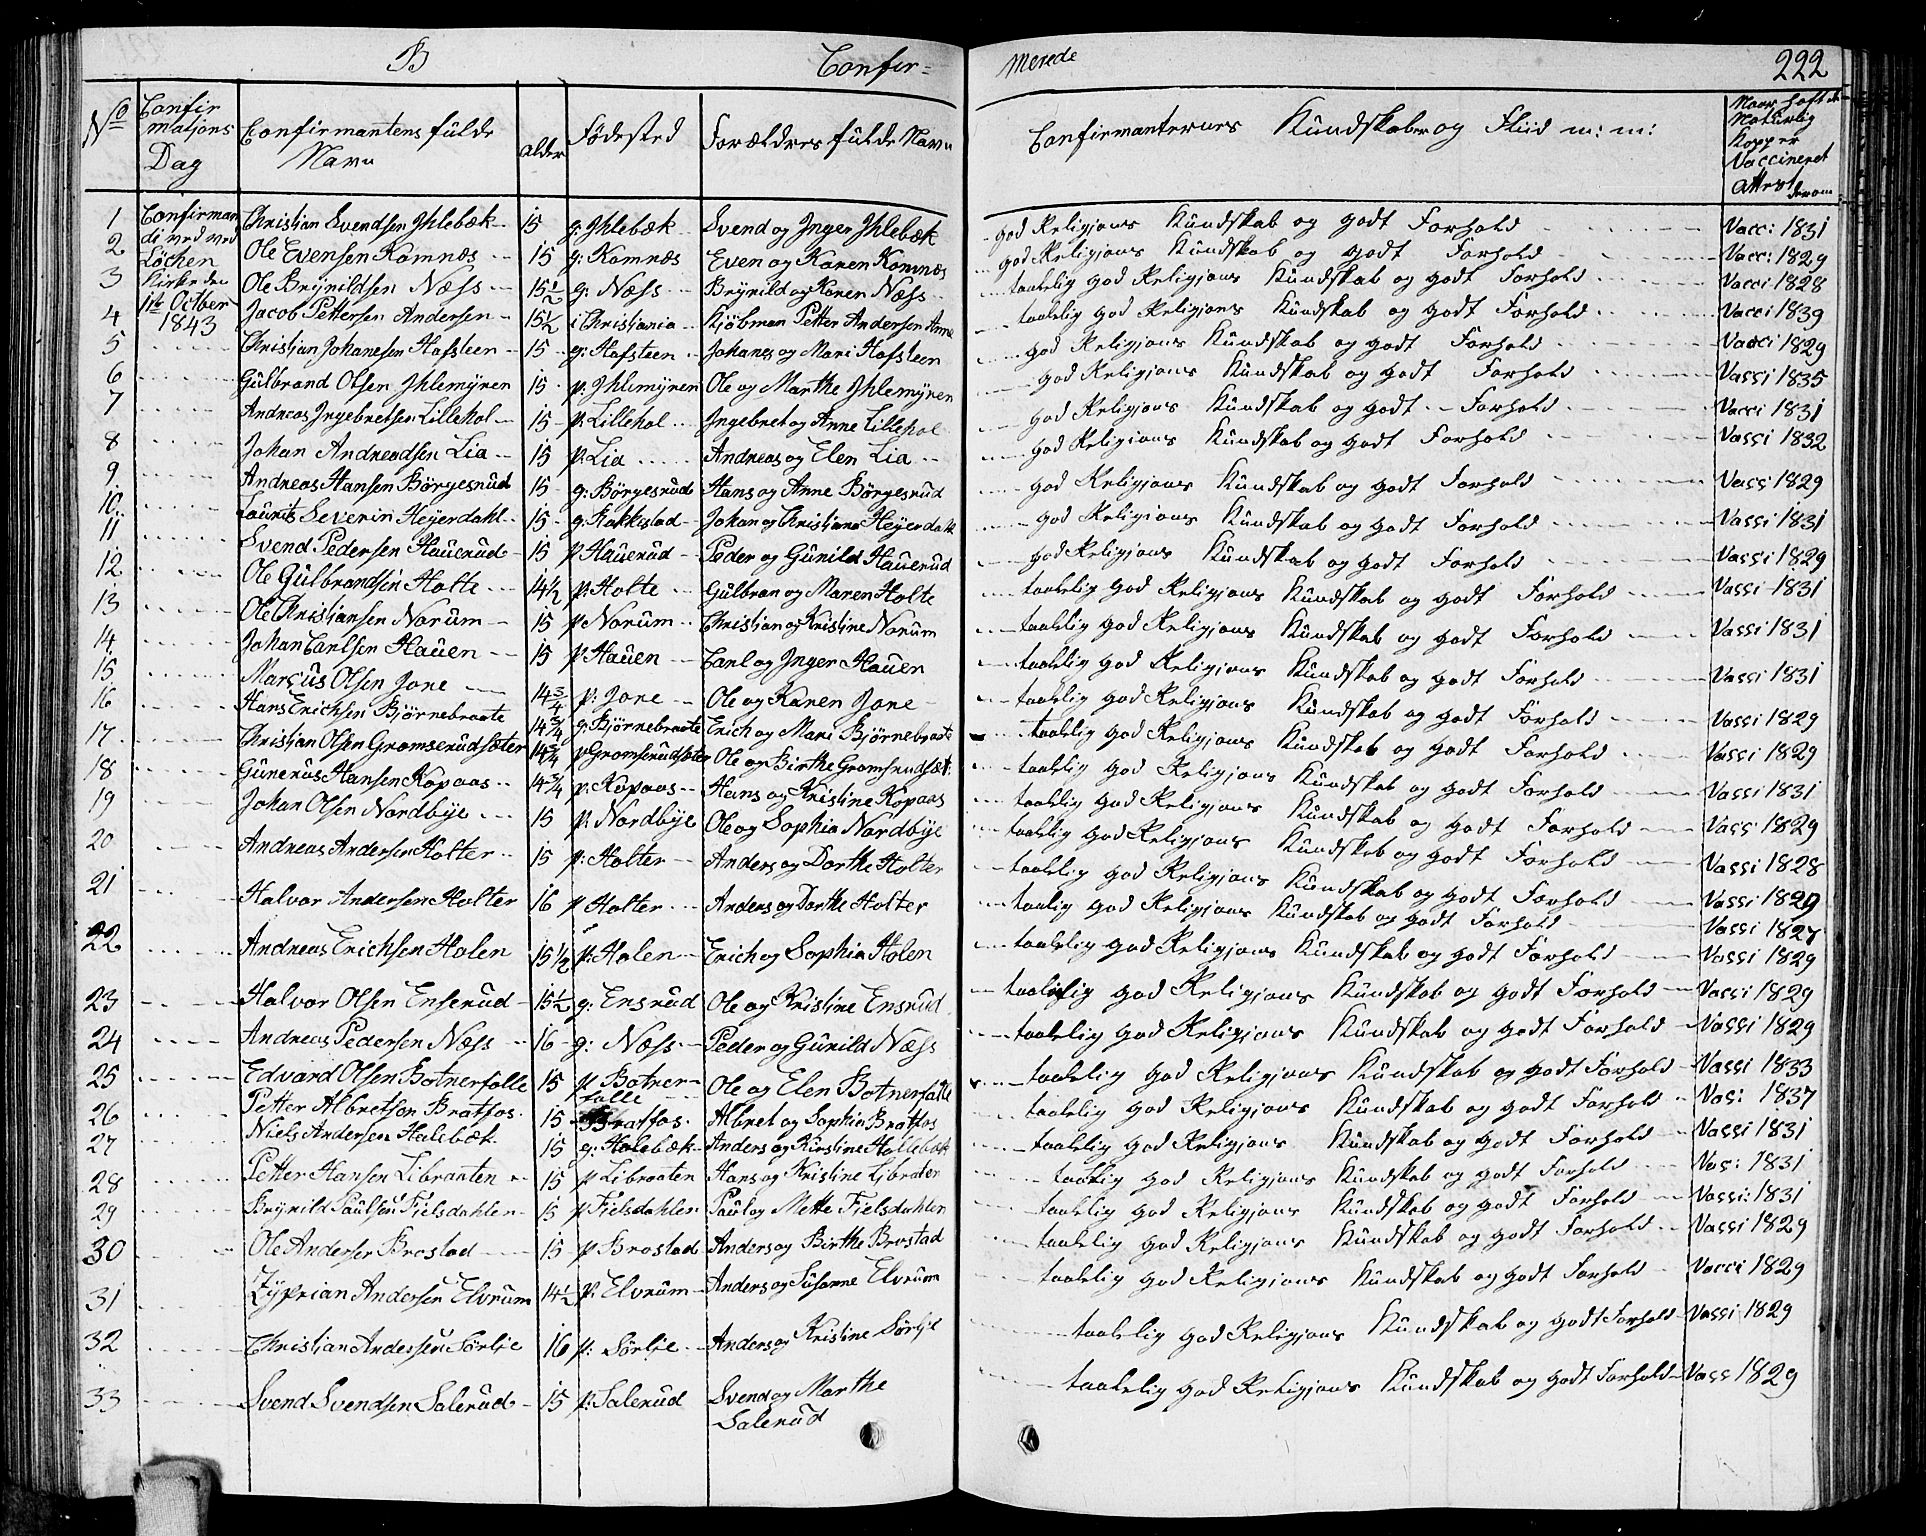 B Confir= Merede 222
No Confirmatjons Dag Confirmantens fülde Navn alder Födested Forældres fülde Navn Confirmanternes Kundskaber og Fliid m: m: Naar haft de Naturlig Kopper Vaccineret Attest derom
Confirman di ved ved Löchen Kirke den 1te October 1843
1 Christian Svendsen Ihlebæk 15 g: Ihlebæk Svend og Inger Ihlebæk god Religjons Kundskab og godt Forhold Vacci 1831
2 Ole Evensen Komnæs 15 g: Komnæs Even og Karen Komnæs god Religjons Kundskab og godt Forhold Vacci 1829
3 Ole Brÿnildsen Næss 15 1/2 g: Næss Brÿnild og Karen Næss taalelig god Religjons Kundskab og godt Forhold Vacci 1828
4 Jacob Pettersen Andersen 15 1/2 i Christiania Kjöbman Petter Andersen Anne taalelig god Religjons Kundskab og godt Forhold Vacci 1839
5 Christjan Johanesen Hafsteen 15 g: Hafsteen Johanes og Mari Hafsteen god Religjons Kundskab og godt Forhold Vacci 1829
6 Gülbrand Olsen Ihlemÿren 15 p: Ihlemÿren Ole og Marthe Ihlemÿren god Religjons Kundskab og godt Forhold Vassi 1835
7 Andreas Ingebretsen Lillehol 15 p: Lillehol Ingebret og Anne Lillehol god Religjons Kundskab og godt Forhold Vacci 1831
8 Johan Andreadsen Lia 15 p: Lia Andreas og Elen Lia god Religjons Kundskab og godt Forhold Vassi 1832
9 Andreas Hansen Börgesrud 15 g: Börgesrud Hans og Anne Börgesrud god Religjons Kundskab og godt Forhold Vassi 1829
10 Laurits Severin Heÿerdahl 15 g: Rakkestad Johan og Christiane Heÿerdahl god Religjons Kundskab og godt Forhold Vassi 1831
11 Svend Pedersen Hauerud 15 p Hauerud Peder og Gunild Hauerud god Religjons Kundskab og godt Forhold Vassi 1829
12 Ole Gülbrandsen Holte 14 1/2 p: Holte Gülbran og Maren Holte taalelig god Religjons Kundskab og godt Forhold Vassi 1831
13 Ole Christjansen Norum 15 p Norum Christian og Kristine Norum taalelig god Religjons Kundskab og godt Forhold Vassi 1831
14 Johan Carlsen Hauen 15 p Hauen Carl og Inger Hauen taalelig god Religjons Kundskab og godt Forhold Vassi 1831
15 Marcus Olsen Jone 14 3/4 p: Jone Ole og Karen Jone taalelig god Religjons Kundskab og godt Forhold Vassi 1829
16 Hans Erichsen Björnebraate 14 3/4 g: Björnebraate Erich og Mari Björnebraate taalelig god Religjons Kundskab og godt Forhold Vassi 1829
17 Christjan Olsen Gromserudsæter 14 3/4 p Gromserudsæter Ole og Birthe Gromsrudsæt: taalelig god Religjons Kundskab og godt Forhold Vassi 1831
18 Gunerus Hansen Kopaas 14 3/4 p: Kopaas Hans og Kristine Kopaas taalelig god Religjons Kundskab og godt Forhold Vassi 1829
19 Johan Olsen Nordbÿe 15 p: Nordbÿe Ole og Sophia Nordbÿe taalelig god Religjons Kundskab og godt Forhold Vassi 1828
20 Andreas Andersen Holter 15 p: Holter Anders og Dorthe Holter taalelig god Religjons Kundskab og godt Forhold Vassi 1829
21 Halvor Andersen Holter 16 p Holter Anders og Dorthe Holter taalig god Religjons Kundskab og godt Forhold Vassi 1827
22 Andreas Erichsen Holen 15 1/2 p: Holen Erich og Sophia Holen taalelig god Religjons Kundskab og godt Forhold Vassi 1829
23 Halvor Olsen Enserud 15 1/2 g: Ensrud Ole og Kristine Ensrud taalelig god Religjons Kundskab og godt Forhold Vassi 1829
24 Andreas Pedersen Næss 16 g: Næss Peder og Gunild Næss taalelig god Religjons Kundskab og godt Forhold Vassi 1829
25 Edvard Olsen Botnerfalle 15 p Botnerfalle Ole og Elen Botnerfalle taalelig god Religjons Kundskab og godt Forhold Vassi 1833
26 Petter Albretsen Bratfos 15 Bratfos Albret og Sophia Bratfos taalelig god Religjons Kundskab og godt Forhold Vas: 1837
27 Niels Andersen Holebæk 15 g: Holebæk Anders og Kirstine Hollebæk taalelig god Religjons Kundskab og godt Forhold Vassi 1831
28 Petter Hansen Libraaten 15 p Libraaten Hans og Kristine Libraten taalelig god Religjons Kundskab og godt Forhold Vas: 1831
29 Brÿnild Paulsen Fielsdahlen 15 p Fielsdahlen Paul og Mette Fielsdahlen taalelig god Religjons Kundskab og godt Forhold Vassi: 1831
30 Ole Andersen Brostad 15 p Brostad Anders og Birthe Brostad taalelig god Religjons Kundskab og godt Forhold Vassi 1829
31 Zÿprian Andersen Elvrum 14 1/2 p: Elvrum Anders og Susanne Elvrum taalelig god Religjons Kundskab og godt Forhold Vacci 1829
32 Christian Andersen Sörlie 16 p: Sörlie Anders og Kristine Sörlie taalelig god Religjons Kundskab og godt Forhold Vassi 1829
33 Svend Svendsen Salerud 15 p: Salerud Svend og Marthe Salerud taalelig god Religjons Kundskab og godt Forhold Vass 1829